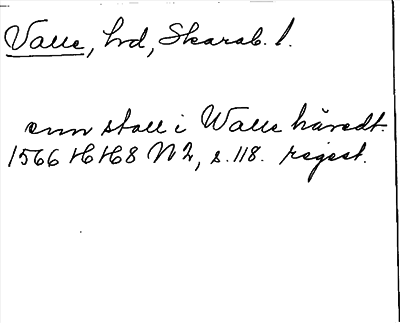 Valle, hrd, Skarab. l.
enn stall i Walle häredt.
1566 HH8 N2, s. 118. regest.